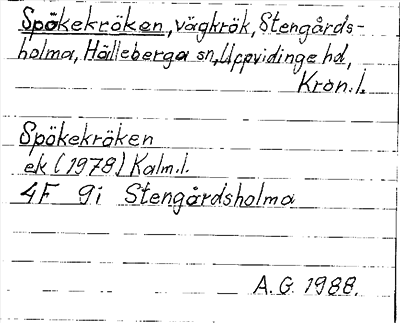 Spökekröken, vägkrök, Stengårds-
holma, Hälleberga sn, Uppvidinge hd,
Kron.l.
Spökekröken
ek (1978) Kalm.l.
4F 9i Stengårdsholma
A.G. 1988.